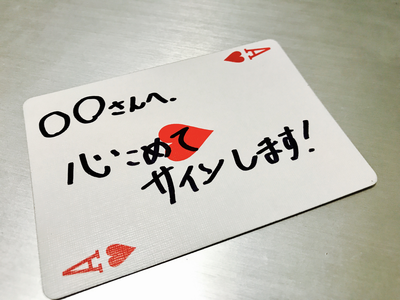 A
〇〇さんへ.
心こめて
サインします!
A